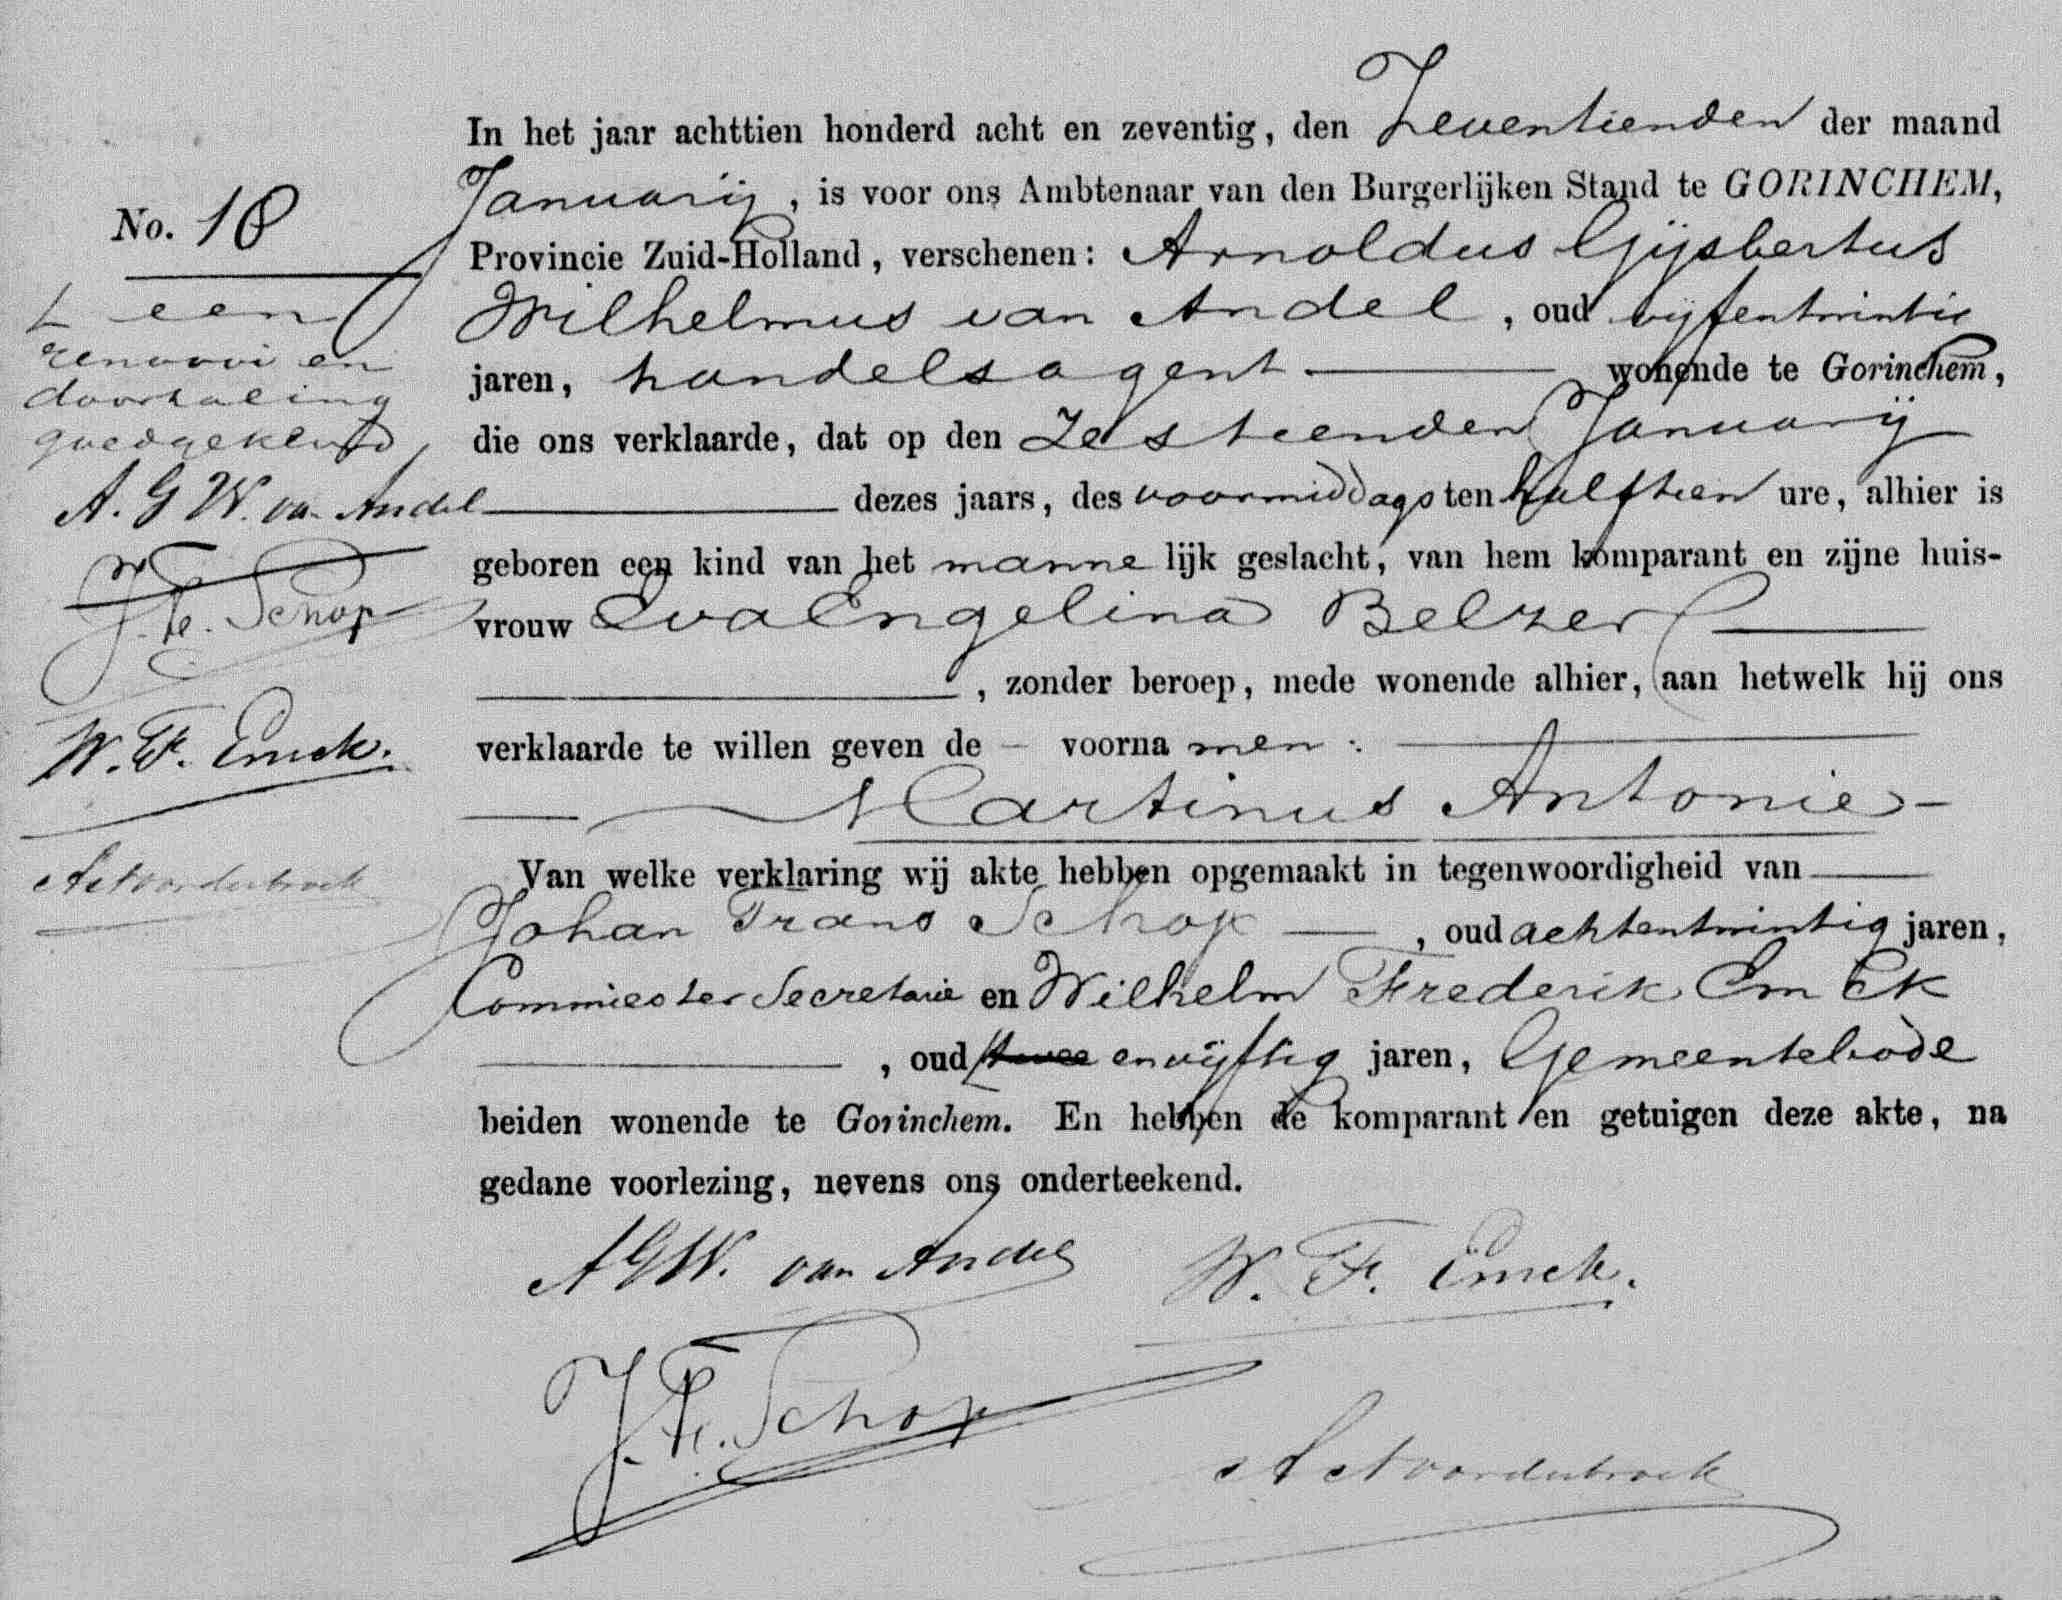 In het jaar achttien honderd acht en zeventig, den Zeventienden der maand
Januarij, is voor ons Ambtenaar van den Burgerlijken Stand te GORINCHEM,
No. 18
Provincie Zuid-Holland, verschenen: Arnoldus Gijsbertus
Wilhelmus van Andel, oud vijfentwintig
jaren, handelsagent wonende te Gorinchem,
die ons verklaarde, dat op den Zestienden Januarij
dezes jaars, des voormiddags ten half tien ure, alhier is
geboren een kind van het mannelijk geslacht, van hem komparant en zijne huis-
vrouw Eva Engelina Belzer
, zonder beroep, mede wonende alhier, aan hetwelk hij ons
verklaarde te willen geven de – voornamen:
Martinus Antonie
Van welke verklaring wij akte hebben opgemaakt in tegenwoordigheid van
Johan Frans Schop, oud achtentwintig jaren,
Commies ter Secretarie en Wilhelm Frederik Emck
, oud twee en vijftig jaren, Gemeentebode
beiden wonende te Gorinchem. En hebben de komparant en getuigen deze akte, na
gedane voorlezing, nevens ons onderteekend.
een
renvooi en
doorhaling
goedgekeurd,
A. G W. van Andel
J. Fr. Schop
W. F. Emck.
AGW. van Andel
W. F. Emck.
J. Fr. Schop